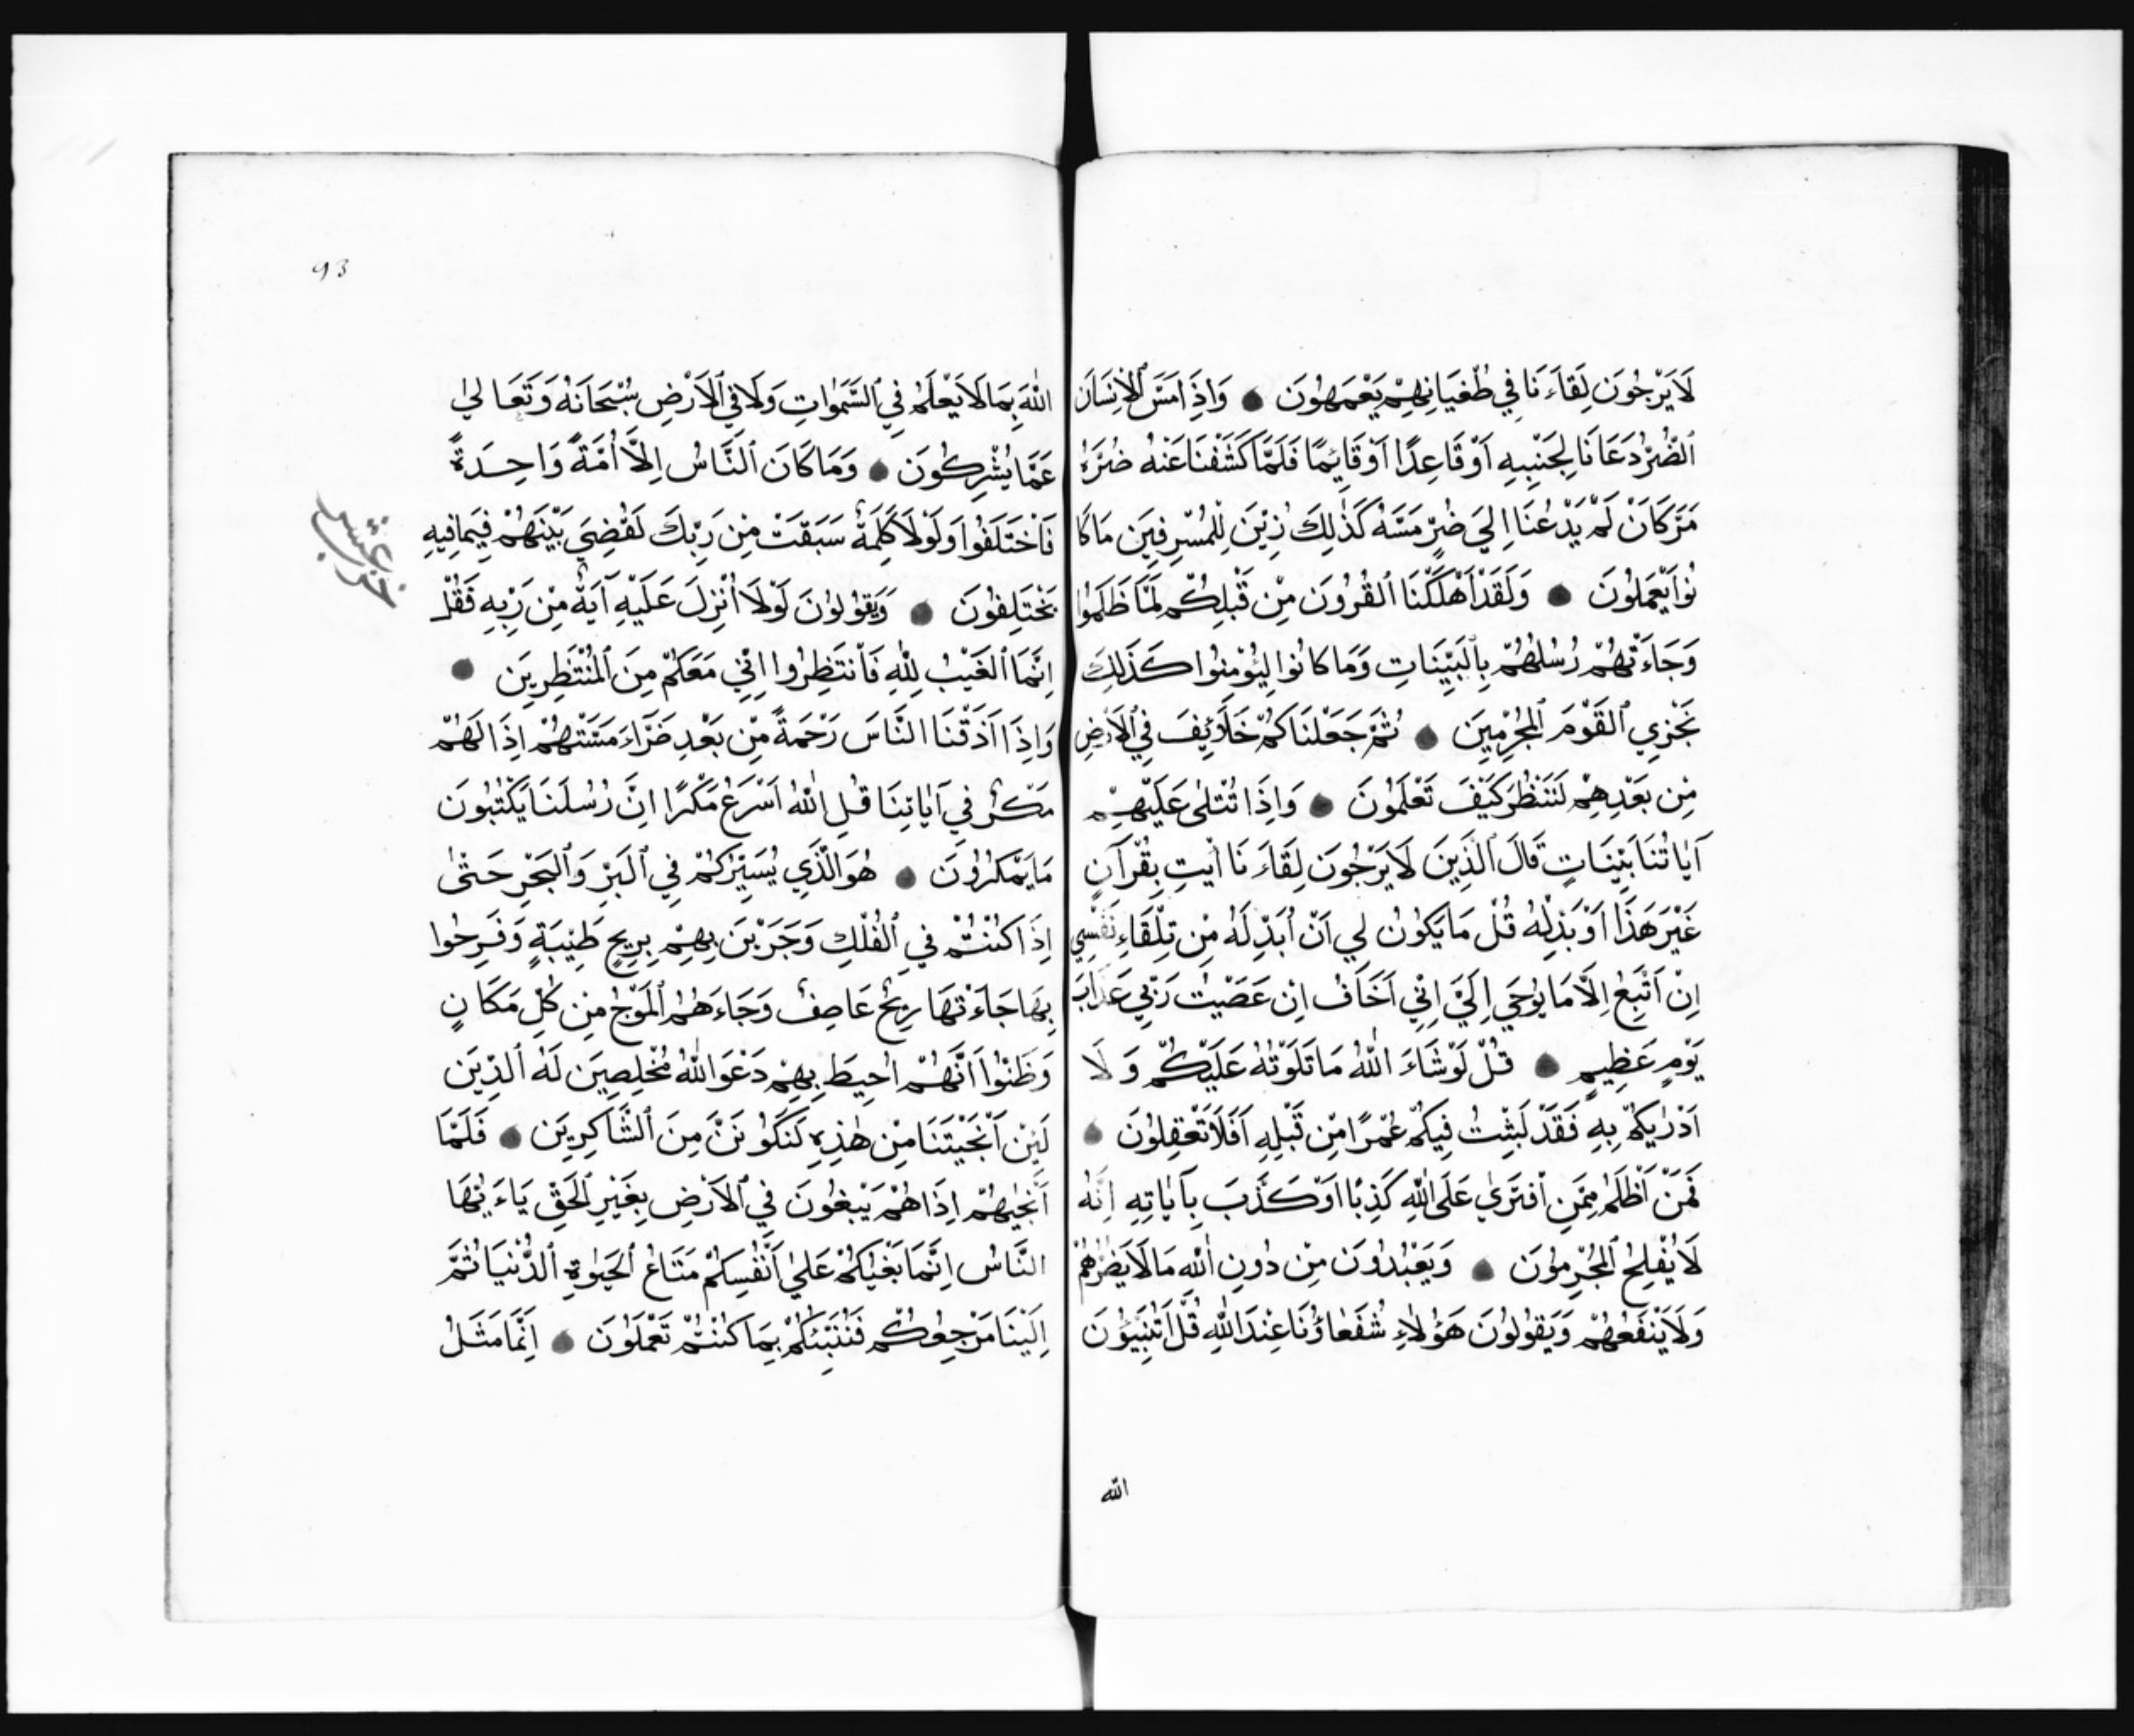 لَا يَرْجُونَ لِقَاءَنَا فِي طُغْيَانِهِمْ يَعْمَهُونَ وَاِذَا مَسَّ ٱلْاِنْسَانَ
ٱلضُّرُّ دَعَانَا لِجَنْبِهِ اَوْ قَاعِدًا اَوْ قَايِمًا فَلَمَّا كَشَفْنَا عَنْهُ ضُرَّهُ
مَرَّ كَانْ لَمْ يَدْعُنَا اِلَي ضُرٍّ مَسَّهُ كَذٰلِكَ زُيِّنَ لِلْمُسْرِفِينَ مَا كَا
نُوا يَعْمَلُونَ وَلَقَدْ اَهْلَكْنَا ٱلْقُرُونَ مِنْ قَبْلِكُمْ لَمَّا ظَلَمُوا
وَجَاءَتْهُمْ رُسُلُهُمْ بِٱلْبَيِّنَاتِ وَمَا كَانُوا لِيُؤْمِنُوا كَذَلِكَ
نَجْزِي ٱلْقَوْمَ ٱلْمُجْرِمِينَ ثُمَّ جَعَلْنَاكُمْ خَلَائِفَ فِي ٱلْاَرْضِ
مِنْ بَعْدِهِمْ لَنَنْظُرَ كَيْفَ تَعْلَمُونَ وَاِذَا تُتْلٰى عَلَيْهِمْ
آيَاتُنَا بَيِّنَاتٍ قَالَ ٱلَّذِينَ لَا يَرْجُونَ لِقَاءَنَا اْيتِ بِقُرْآنٍ
غَيْرَ هَذَا اَوْ بَدِّلْهُ قُلْ مَا يَكُونُ لِي اَنْ اُبَدِّلَهُ مِنْ تِلْقَاءِ نَفْسِي
اِنْ اَتَّبِعُ اِلَّا مَا يُوحَي اِلَيَّ اِنِّي اَخَافُ اِنْ عَصَيْتُ رَبِّي عَذَابَ
يَوْمٍ عَظِيمٍ قُلْ لَوْ شَاءَ اللّٰهُ مَا تَلَوْتُهُ عَلَيْكُمْ وَلَا
اَدْرٰيكُمْ بِهِ فَقَدْ لَبِثْتُ فِيكُمْ عُمْرًا مِنْ قَبْلِهِ اَفَلَا تَعْقِلُونَ
فَمَنْ اَظْلَمُ مِمَّنِ اْفْتَرَيٰ عَلَى اللّٰهِ كَذِبًا اَوْ كَذَّبَ بِآيَاتِهِ اِنَّهُ
لَا يُفْلِحُ ٱلْمُجْرِمُونَ وَيَعْبُدُونَ مِنْ دُونِ اللّٰهِ مَا لَا يَضُرُّهُمْ
وَلَا يَنْفَعُهُمْ وَيَقُولُونَ هَؤُلَاءِ شُفَعَاؤُنَا عِنْدَ اللّٰهِ قُلْ اَتُنَبِّيُونَ
الله
93
اللّٰهَ بِمَا لَا يَعْلَمُ فِي ٱلسَّمٰوَاتِ وَلَا فِي ٱلْاَرْضِ سُبْحَانَهُ وَتَعَالَيٰ
عَمَّا يُشْرِكُونَ وَمَا كَانَ ٱلنَّاسُ اِلَّا اُمَّةً وَاحِدَةً
فَاْخْتَلَفُوا وَلَوْلَا كَلِمَةٌ سَبَقَتْ مِنْ رَبِّكَ لَقُضِيَ بَيْنَهُمْ فِيمَا فِيهِ
يَخْتَلِفُونَ وَيَقُولُونَ لَوْلَا اُنْزِلَ عَلَيْهِ آيَةٌ مِنْ رَبِّهِ فَقُلْ
اِنَّمَا ٱلْغَيْبُ لِلّٰهِ فَاْنْتَظِرُوا اِنِّي مَعَكُمْ مِنَ ٱلْمُنْتَظِرِينَ
وَاِذَا اَذَقْنَا النَّاسَ رَحْمَةً مِنْ بَعْدِ ضَرَّاءَ مَسَّتْهُمْ اِذَا لَهُمْ
مَكْرٌ فِي آيَاتِنَا قُلِ اللّٰهُ اَسْرَعُ مَكْرًا اِنَّ رُسُلَنَا يَكْتُبُونَ
مَا يَمْكُرُونَ هُوَ الَّذِي يُسَيِّرُكُمْ فِي ٱلْبَرِّ وَٱلْبَحْرِ حَتّٰى
اِذَا كُنْتُمْ فِي ٱلْفُلْكِ وَجَرَيْنَ بِهِمْ بِرِيحٍ طَيِّبَةٍ وَفَرِحُوا
بِهَا جَاءَتْهَا رِيحٌ عَاصِفٌ وَجَاءَهُمُ ٱلْمَوْجُ مِنْ كُلِّ مَكَانٍ
وَظَنُّوا اَنَّهُمْ اُحِيطَ بِهِمْ دَعَوُا اللّٰهَ مُخْلِصِينَ لَهُ ٱلدِّينَ
لَئِنْ اَنْجَيْتَنَا مِنْ هٰذِهِ لَنَكُونَنَّ مِنَ ٱلشَّاكِرِينَ فَلَمَّا
اَنْجٰيهُمْ اِذَا هُمْ يَبْغُونَ فِي ٱلْاَرْضِ بِغَيْرِ ٱلْحَقِّ يَاءَيُّهَا
النَّاسُ اِنَّمَا بَغْيُكُمْ عَلٰي اَنْفُسِكُمْ مَتَاعُ ٱلْحَيٰوةِ ٱلدُّنْيَا ثُمَّ
اِلَيْنَا مَرْجِعُكُمْ فَنُنَبِّئُكُمْ بِمَا كُنْتُمْ تَعْمَلُونَ اِنَّمَا مَثَلُ